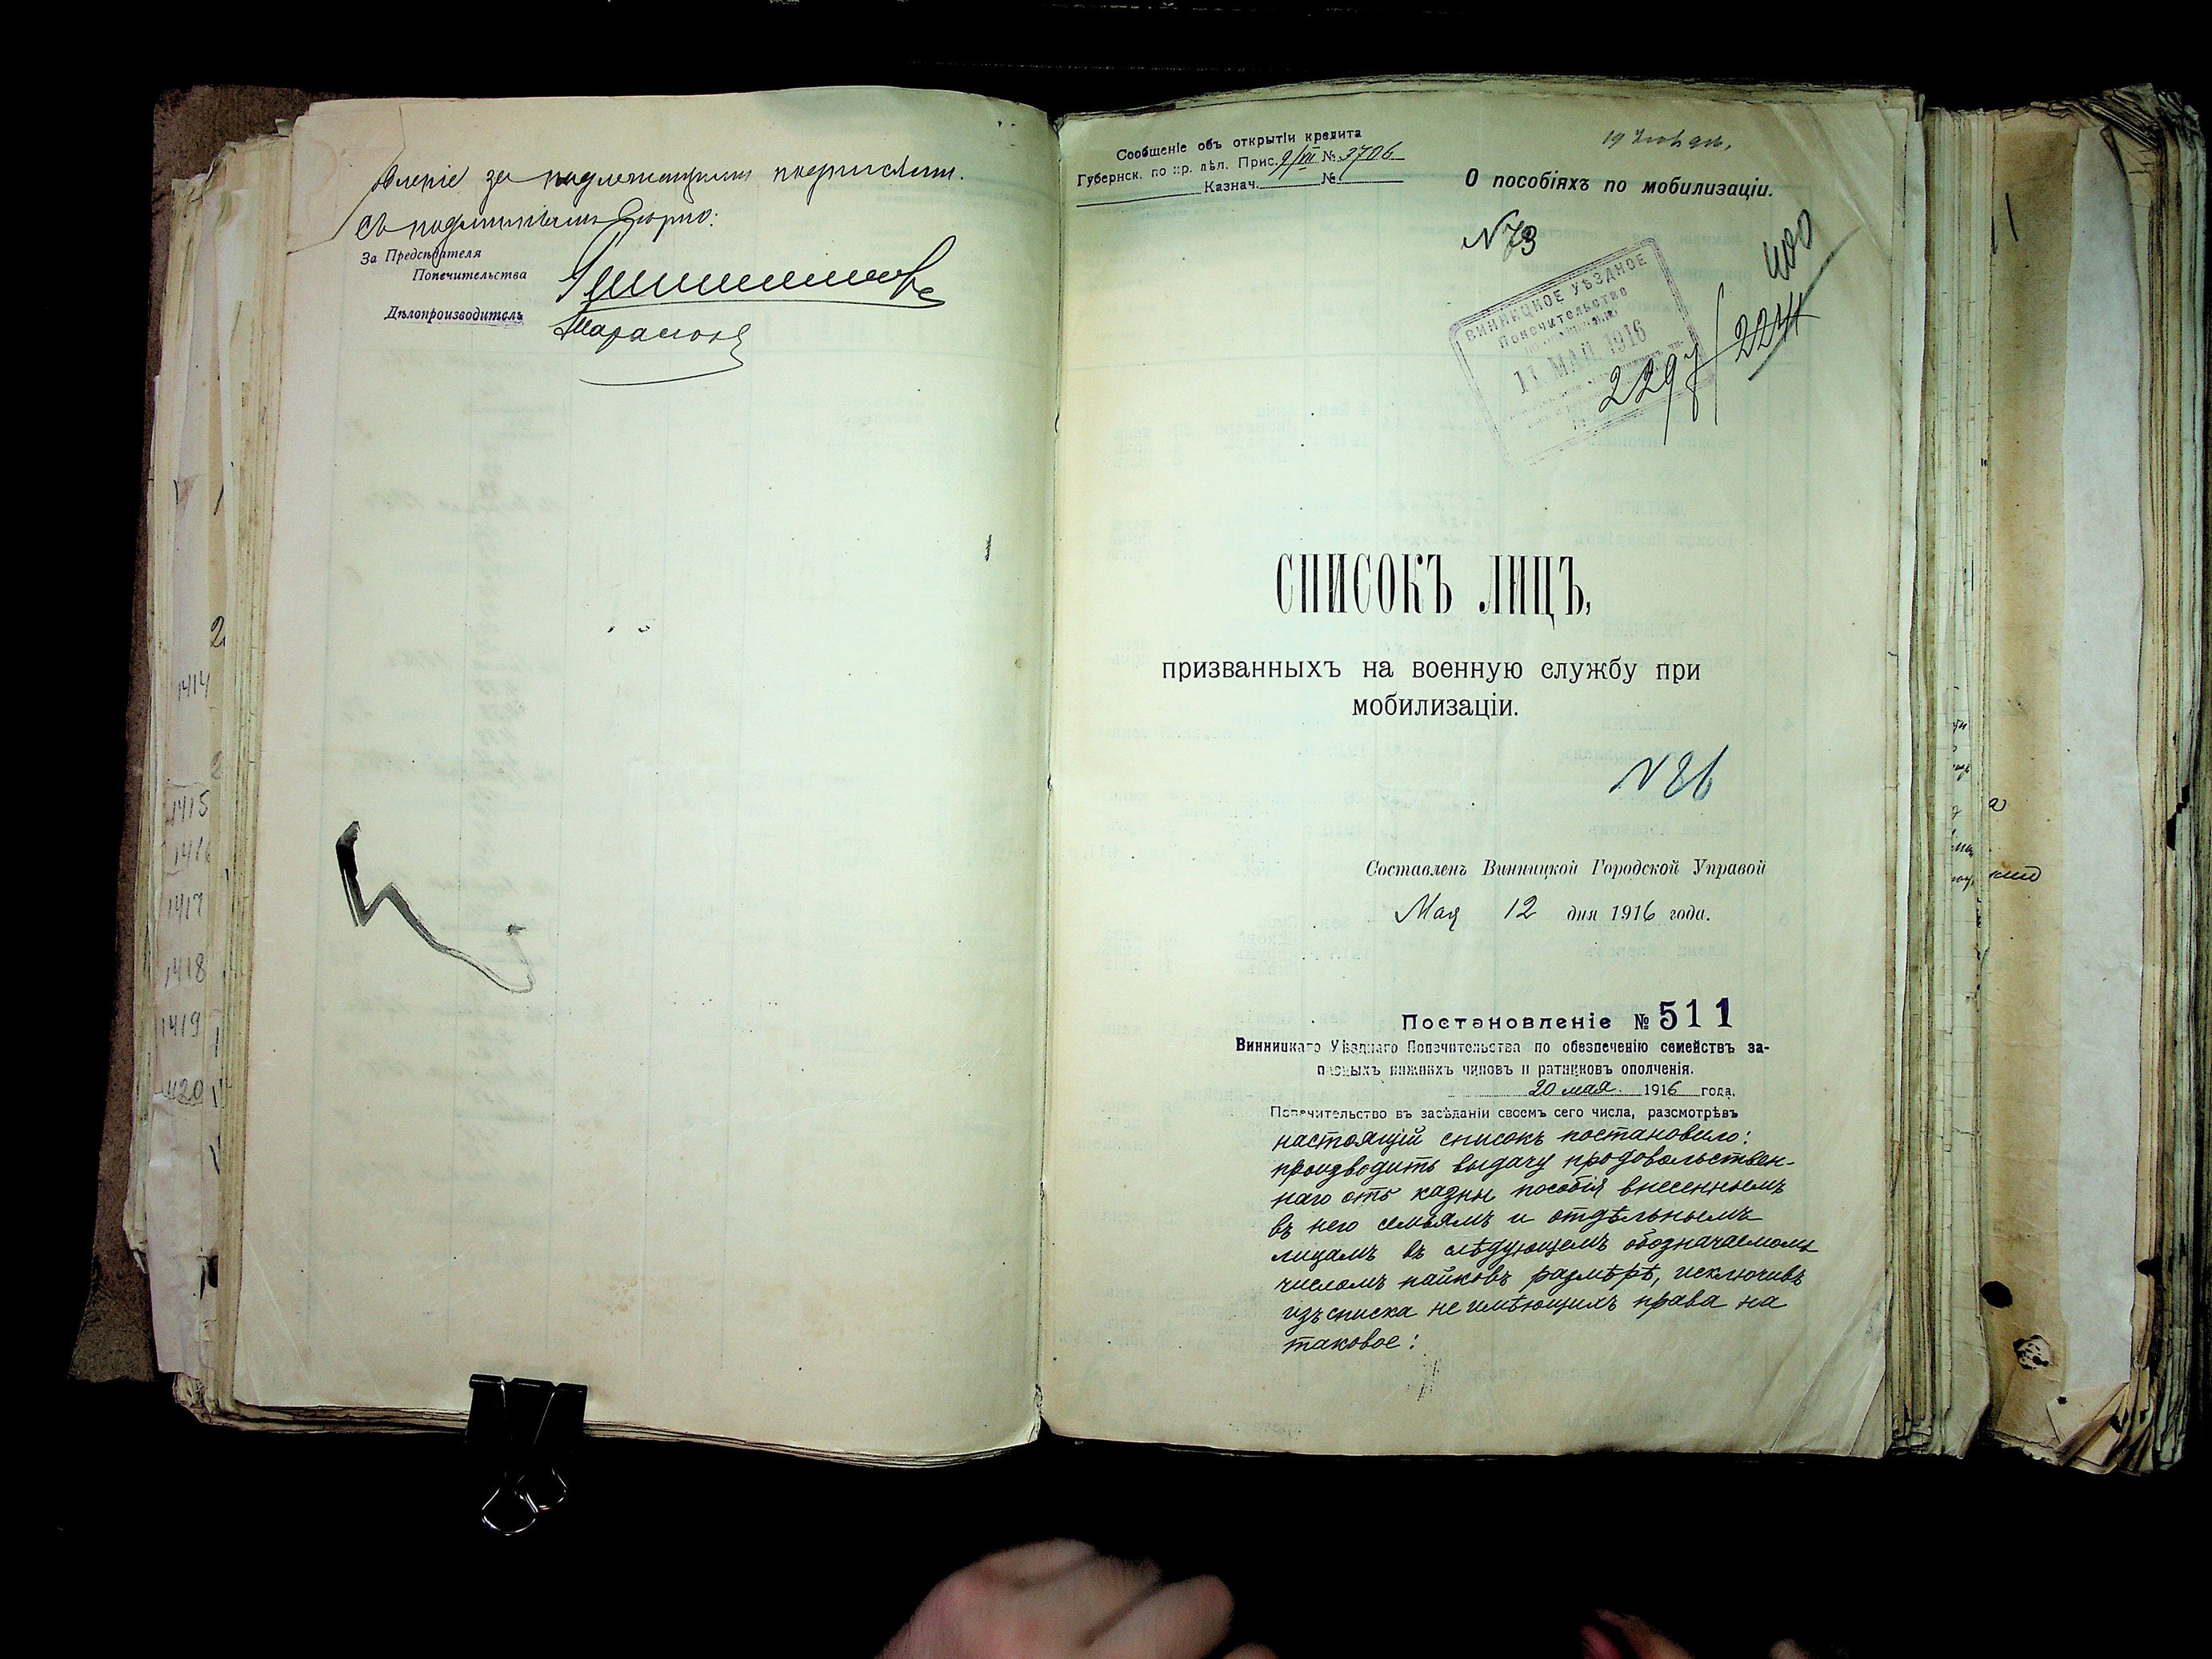 вленіе за надлежащими подписями.
Съ подлиннымъ вѣрно:
За Предсѣдателя
Попечительства
Дѣлопроизводитель
Сообщеніе объ открытіи кредита
Губернск. по кр. дѣл. Прис. 9/VII № 3706
Казнач. №
О пособіяхъ по мобилизаціи.
N 73
400
ВИННИЦКОЕ УѢЗДНОЕ
Попечительство
11 МАЙ 1916
2297 / 2244
СПИСОКЪ ЛИЦЪ,
призванныхъ на военную службу при
мобилизаціи.
N 86
Составленъ Винницкой Городской Управой
Мая 12 дня 1916 года.
Постановленіе № 511
Винницкаго Уѣзднаго Попечительства по обезпеченію семействъ за-
пасныхъ нижнихъ чиновъ и ратниковъ ополченія.
20 мая 1916 года.
Попечительство въ засѣданіи своемъ сего числа, разсмотрѣвъ
настоящій списокъ постановило:
производить выдачу продовольствен-
наго отъ казны пособія внесеннымъ
въ него семьямъ и отдѣльнымъ
лицамъ въ слѣдующемъ обозначаемомъ
числомъ пайковъ размѣрѣ, исключивъ
изъ списка не имѣющихъ права на
таковое:
1414
1415
1416
1417
1418
1419
1420